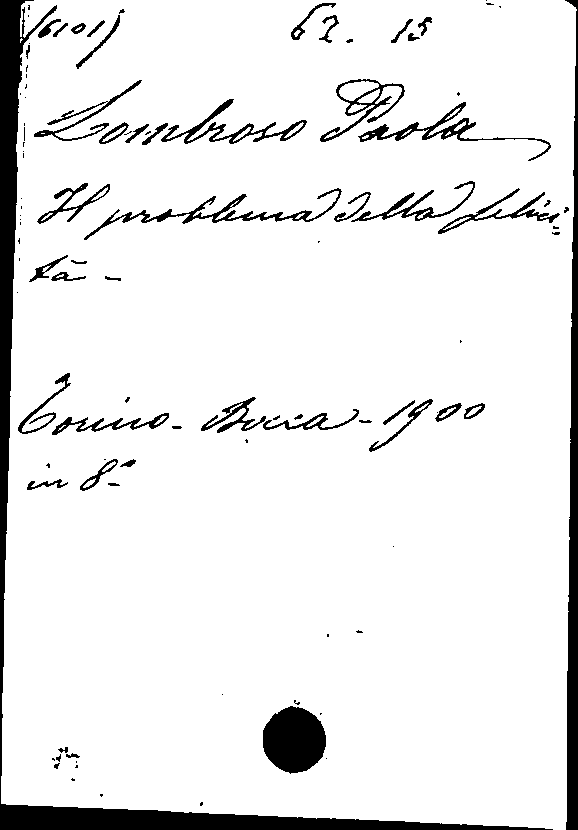 (6101) 62. 15
Lombroso Paola
Il problema della felici=
tà -
Torino - Bocca - 1900
in 8°